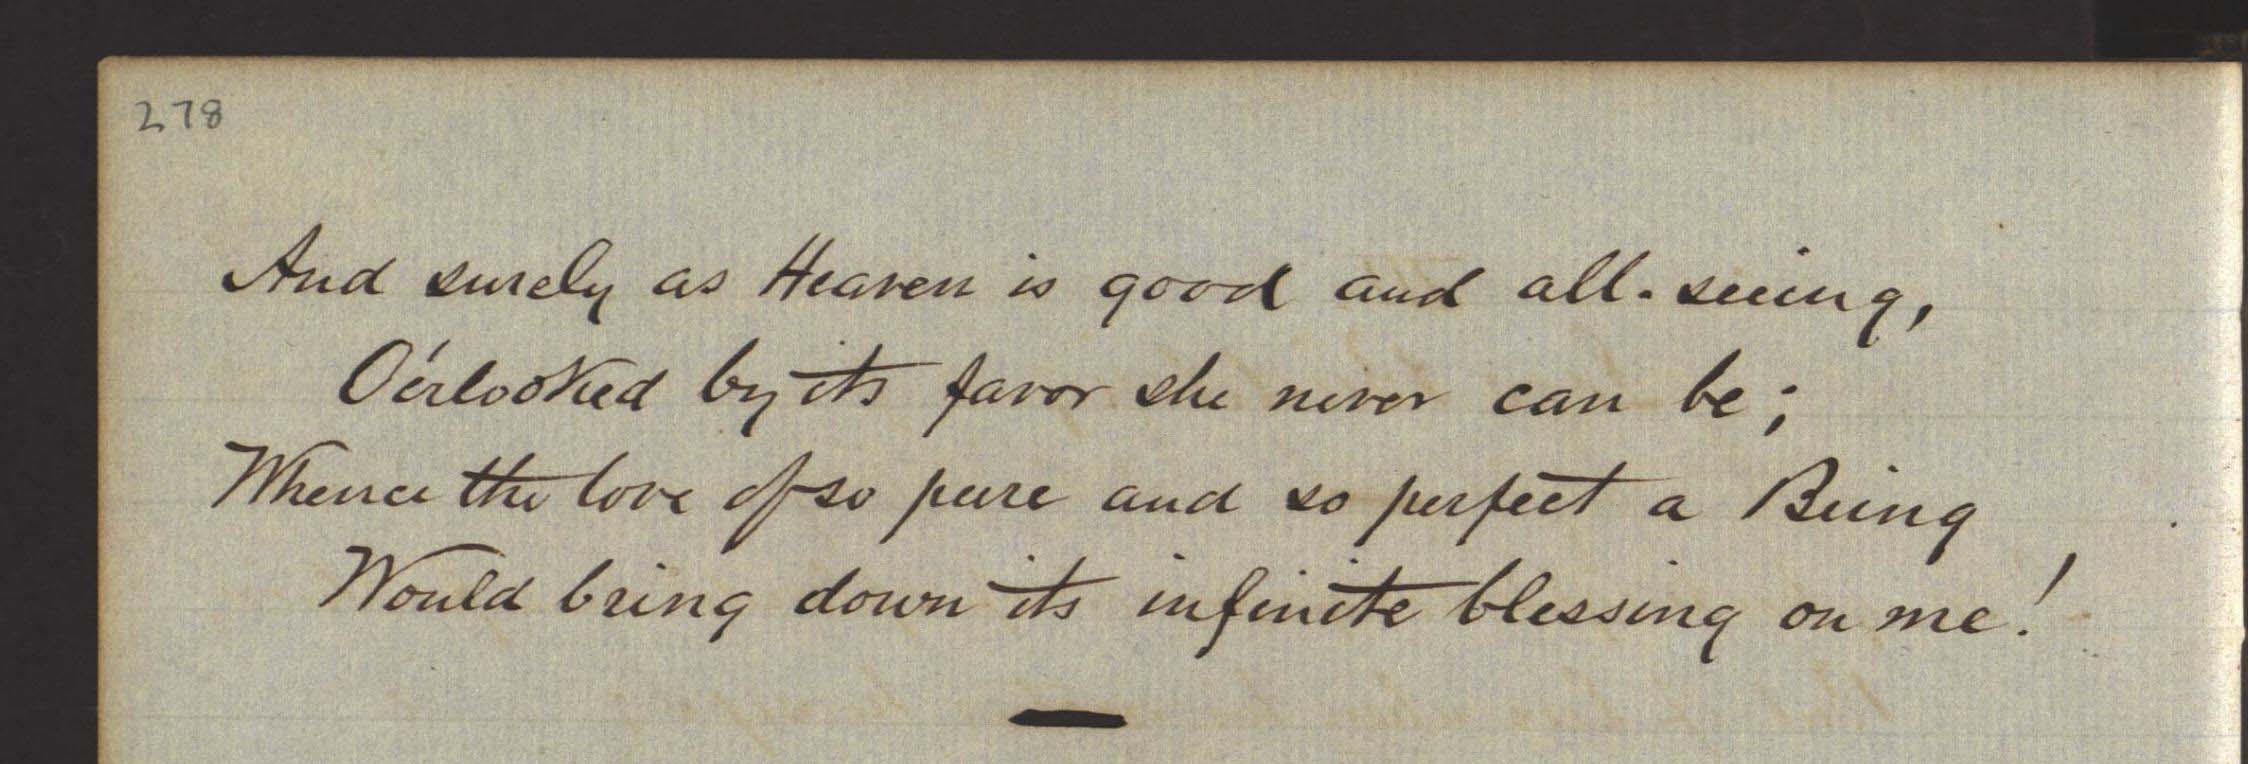 278
And surely as Heaven is good and all-seeing,
O'erlooked by its favor she never can be;
Whence the love of so pure and so perfect a Being
Would bring down its infinite blessing on me!